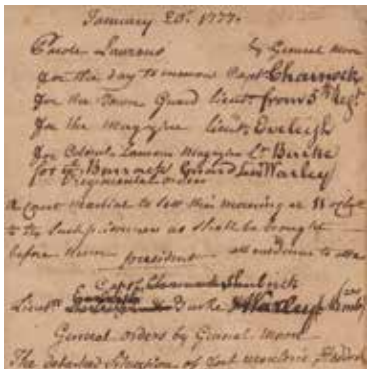 January 20th. 1777.
Parole Laurens By General Moor
for this day to morrow Capt. Charnock
for the Town Guard Lieut. from 5th Regt.
for the Magazine Lieut. Eveleigh
for Colonel Laurens Magazine Lt. Burke
for Guard Lieut Warley
Regimental orders
A Court Martial to Sett this morning at 11 oClock
to try Such prisoners as Shall be brought
before them president all evidences to
Capt.
Lieuts. Burke Warley
General orders by General Moor
The detached Situation of fort